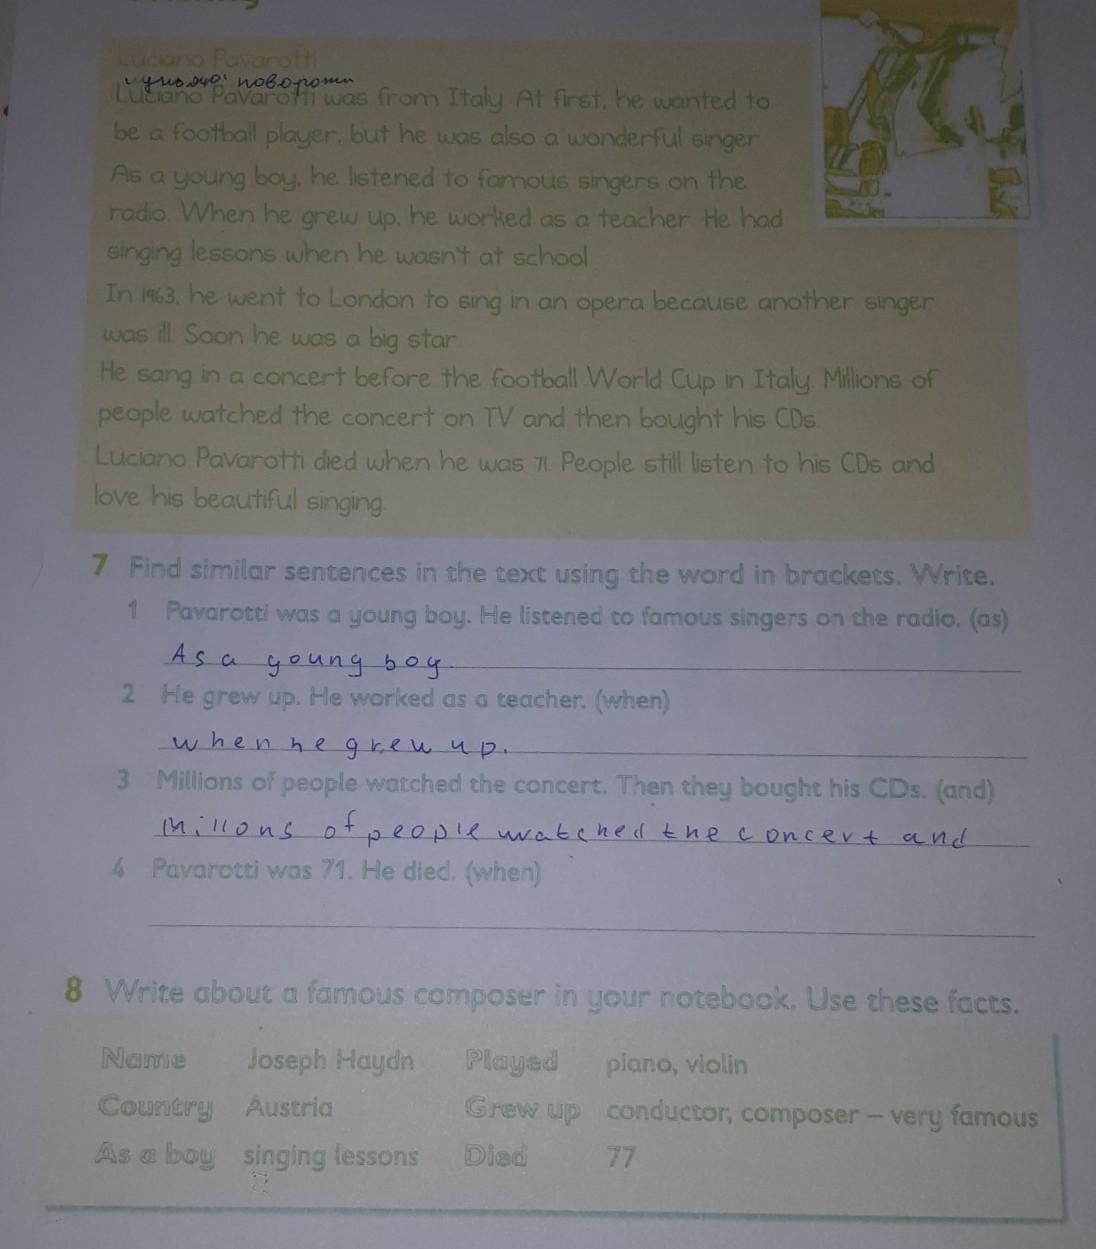 Luciano Pavarotti
поворотти
Luciano Pavarotti was from Italy. At first, he wanted to
be a football player, but he was also a wonderful singer.
As a young boy, he listened to famous singers on the
radio. When he grew up, he worked as a teacher. He had
singing lessons when he wasn't at school.
In 1963, he went to London to sing in an opera because another singer
was ill. Soon he was a big star.
He sang in a concert before the football World Cup in Italy. Millions of
people watched the concert on TV and then bought his CDs.
Luciano Pavarotti died when he was 71. People still listen to his CDs and
love his beautiful singing.
7 Find similar sentences in the text using the word in brackets. Write.
1 Pavarotti was a young boy. He listened to famous singers on the radio. (as)
As a young boy.
2 He grew up. He worked as a teacher. (when)
when he grew up.
3 Millions of people watched the concert. Then they bought his CDs. (and)
Millons of people watched the concert and
4 Pavarotti was 71. He died. (when)
8 Write about a famous composer in your notebook. Use these facts.
Name Joseph Haydn Played piano, violin
Country Austria Grew up conductor, composer – very famous
As a boy singing lessons Died 77